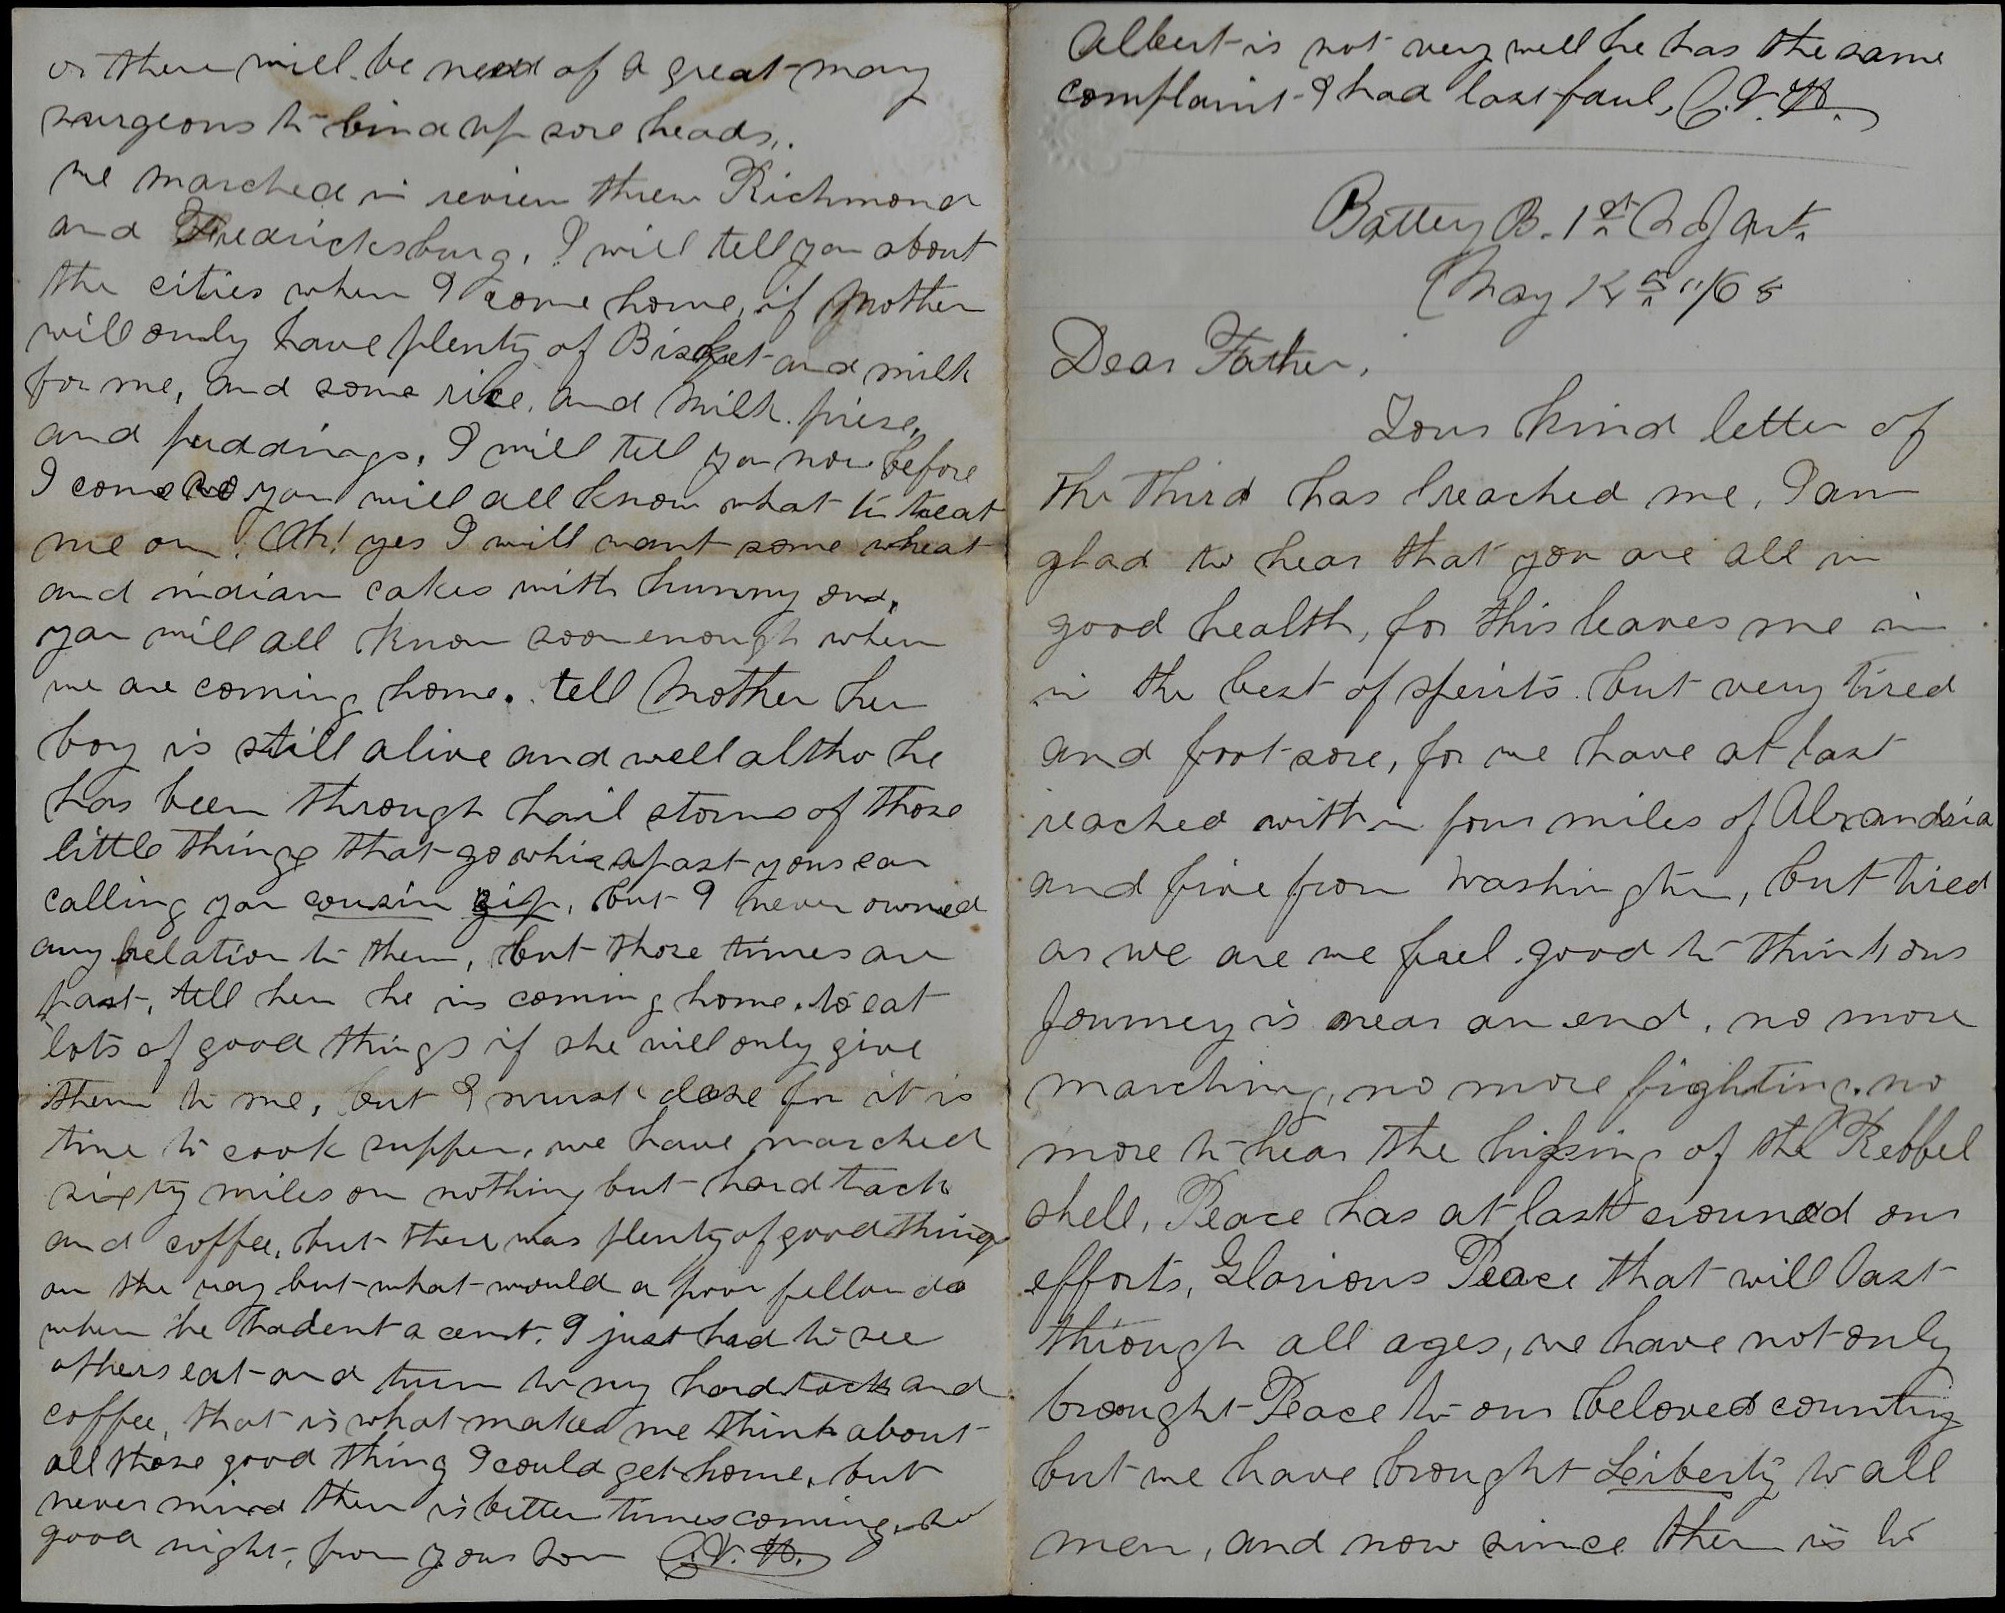 Albert is not very well he has the same
complaint I had last faul, C.V.H.
Battery B. 1st N J Art.
May 12th "/65
Dear Father,
Your kind letter of
the third has reached me, I am
glad to hear that you are all in
good health, for this leaves me in
in the best of speirits. but very tired
and foot sore, for we have at last
reached with in four miles of Alexandria
and five from Washington, but tired
as we are we feel good to think our
Journey is near an end, no more
marching, no more fighting, no
more to hear the hissing of the Rebbel
shell, Peace has at last crowned our
efforts, Glorious Peace that will last
through all ages, we have not only
brought Peace to our beloved country
but we have brought Leiberty to all
men, and now since ther is to
or there will be need of a great many
surgeons to bind up sore heads,.
we marched in review threw Richmond
and Fredricksburg, I will tell you about
the cities when I come home, if Mother
will only have plenty of Bisket and milk
for me, and some rice, and milk piese,
and puddings, I will tell you now before
I come so you will all know what to treat
me on! Oh! yes I will want some wheat
and indian cakes with hunny ond,
you will all know soon enough when
we are coming home. tell Mother her
boy is still alive and well altho he
has been through hail storms of those
little things that go whiz apast your ear
calling you cousin zip, but I never owned
any relation to them, but those times are
past, tell her he is coming home, to eat
lots of good things if she will only give
them to me, but I must close for it is
time to cook supper, we have marched
sixty miles on nothing but hard tack
and coffee, but there was plenty of good things
on the way but what would a poor fellow do
when he hadent a cent, I just had to see
others eat and turn to my hardtack and
coffee, that is what makes me think about
all those good thing I could get home, but
never mind ther is better times coming, so
good night, from your son C.V.H.